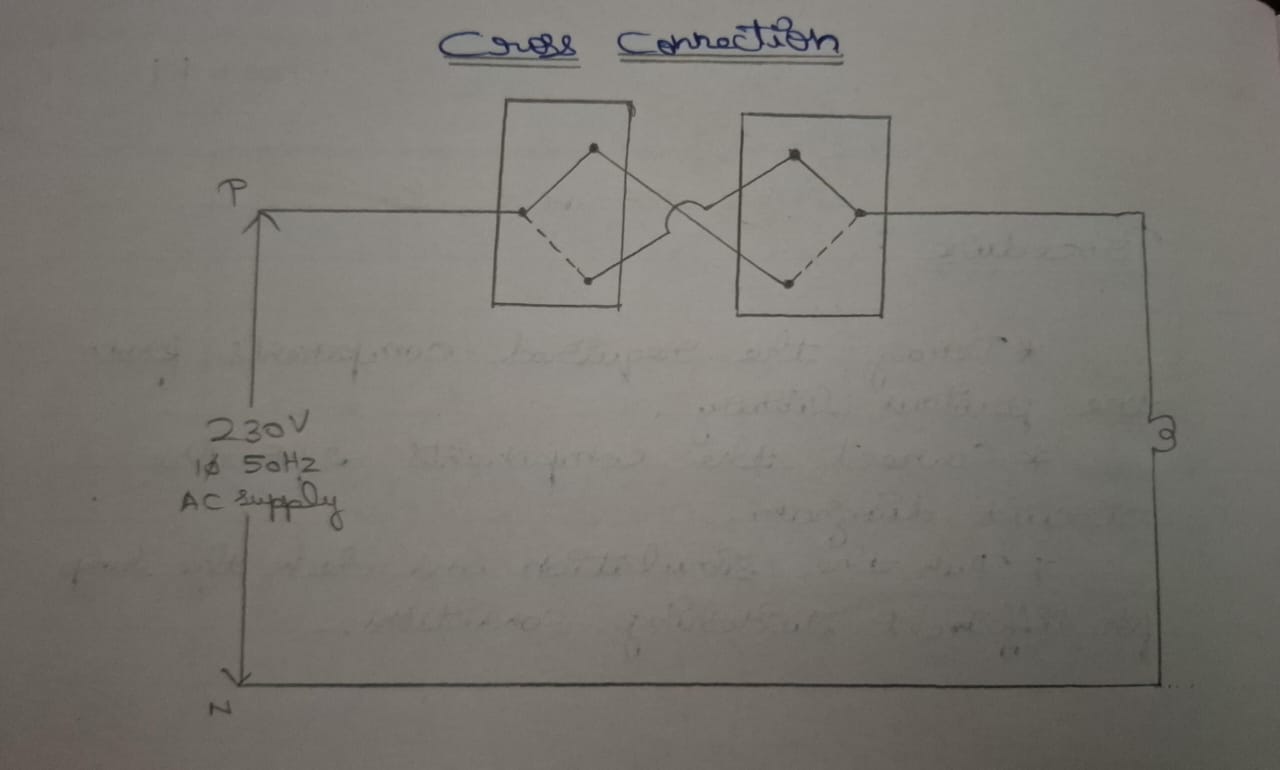 Cross Connection
P
230V
1ϕ 50Hz
AC supply
N